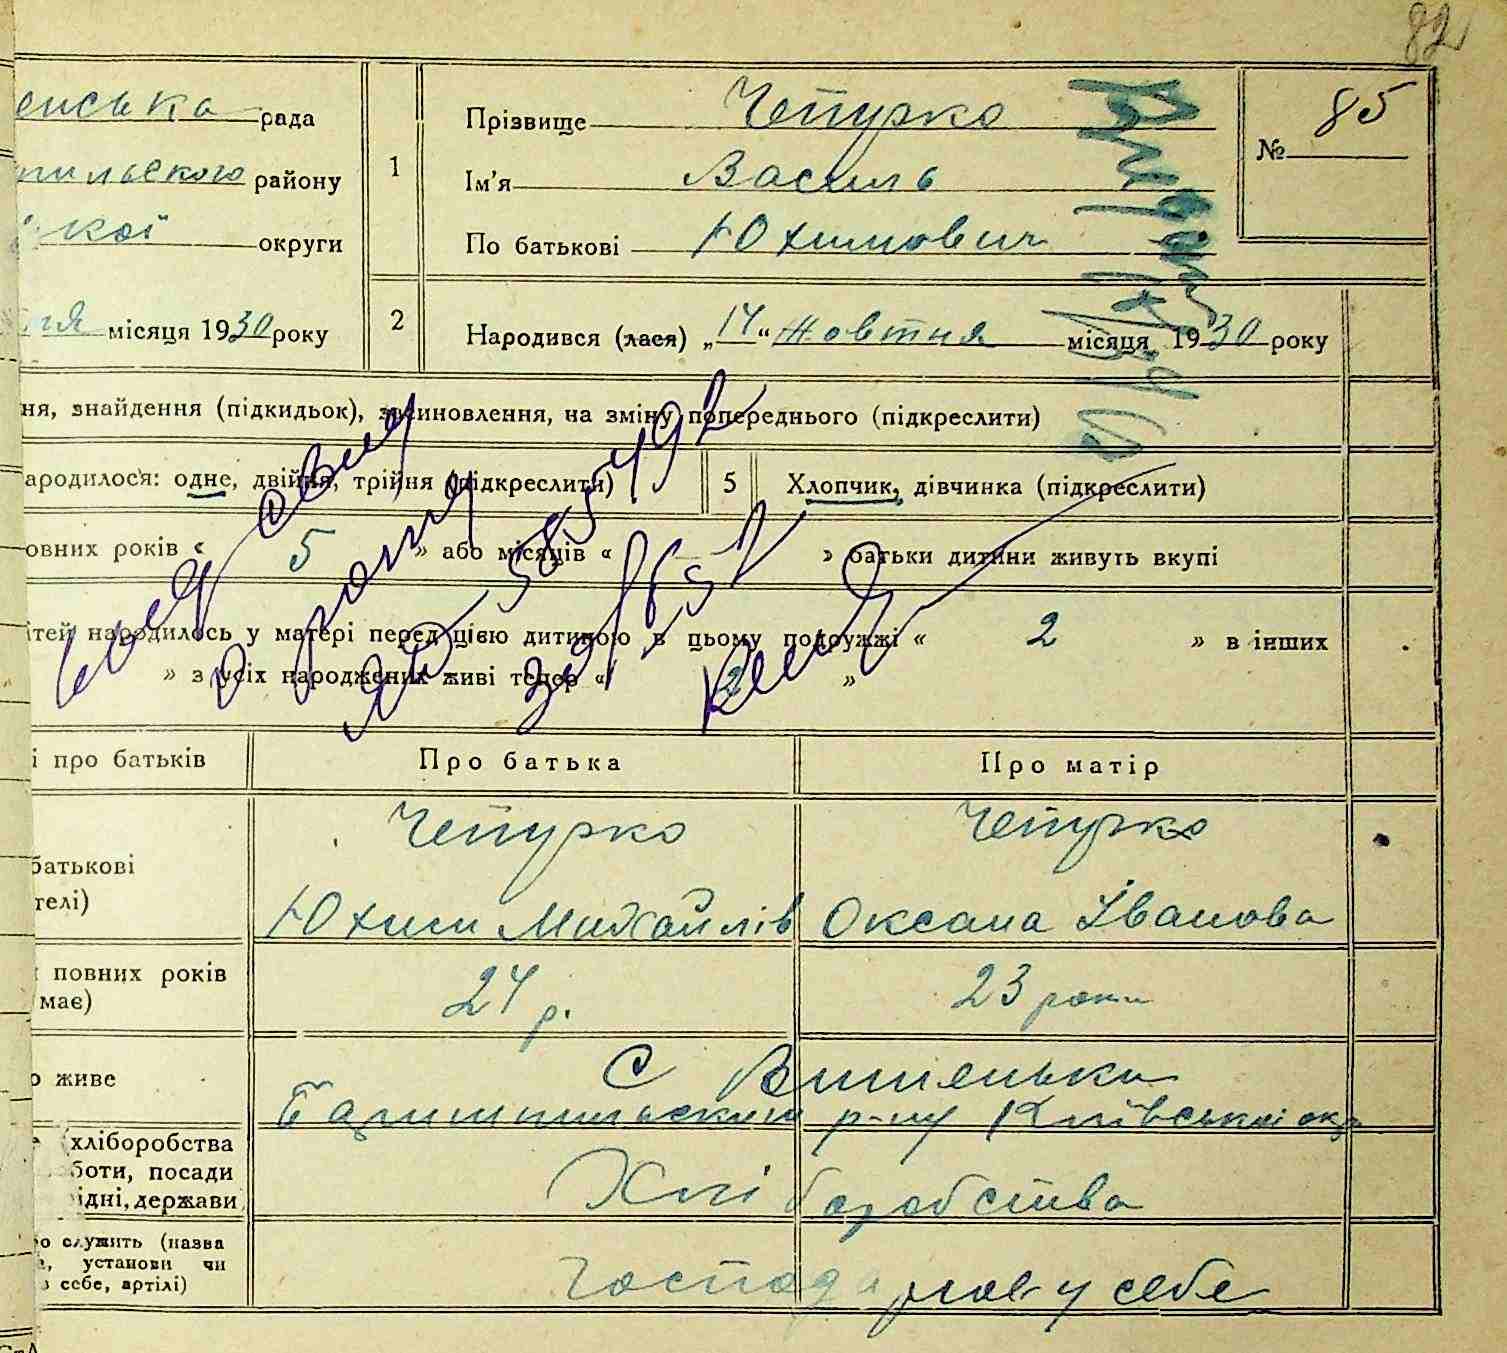 82
енська рада
пильського району
кої округи
1
Прізвище Чепурко
Ім'я Василь
По батькові Юхимович
№ 85
ня місяця 1930 року
2
Народився (лася) „14“ жовтня місяця 1930 року
ня, знайдення (підкидьок), засиновлення, на зміну попереднього (підкреслити)
ародилося: одне, двійня, трійня (підкреслити)
5
Хлопчик, дівчинка (підкреслити)
овних років « 5 » або місяців « — » батьки дитини живуть вкупі
ітей народилось у матері перед цією дитиною в цьому подружжі « 2 » в інших
» з усіх народжених живі тепер « 2 »
і про батьків
Про батька
Про матір
батькові
телі)
Чепурко
Юхим Михайлів
Чепурко
Оксана Іванова
повних років
має)
24 р.
23 роки
о живе
С Вишеньки
Баришпільского р-ну Київської окр
(хліборобства
боти, посади
ідні, держави
Хліборобства
о служить (назва
, установи чи
в себе, артілі)
Господарює у себе